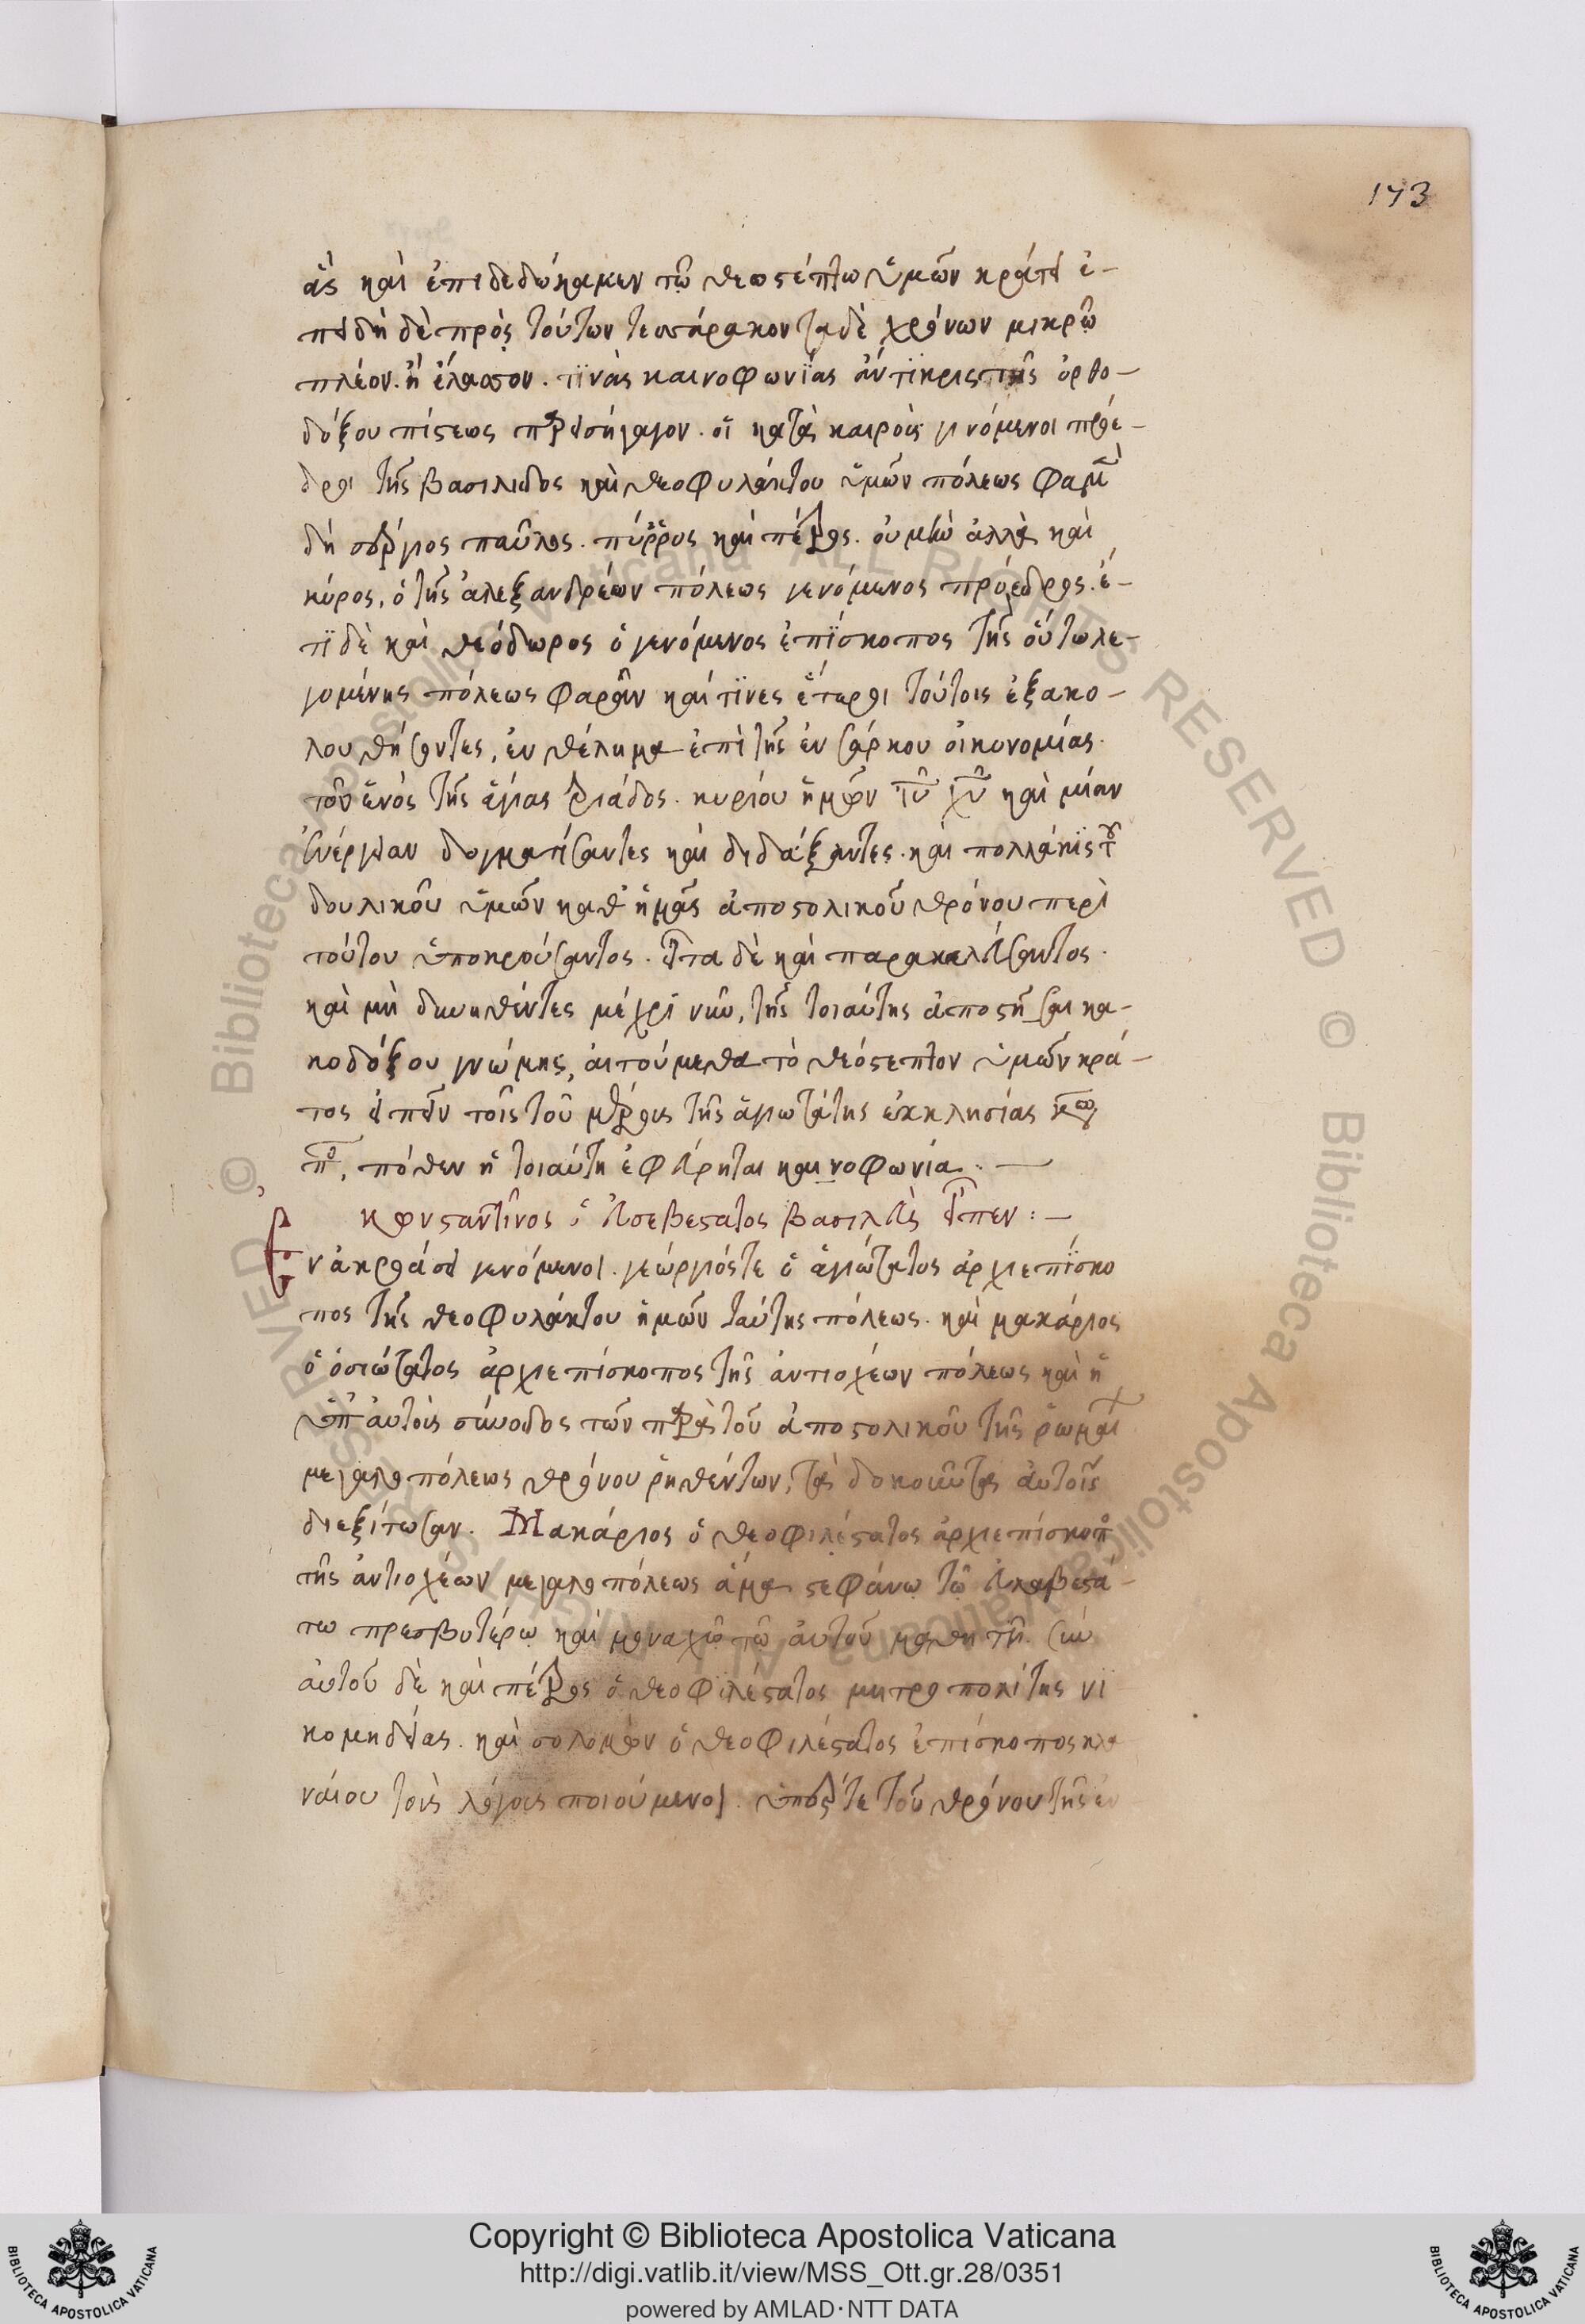 173
ἃς καὶ ἐπιδεδώκαμεν τῷ θεοστέπτω ὑμῶν κράτει ἐ-
πειδὴ δὲ πρὸς τούτων τεσσάρακοντα δὲ χρόνων μικρῶ
πλέον. ἢ ἔλασσον. τϊνὰς καινοφωνΐας ἀντϊκρις τῆς ὀρθο-
δόξου πίστεως παρεισήγαγον. οἱ κατὰ καιροὺς γινόμενοι πρόε-
δροι τῆς βασιλιδος καὶ θεοφυλάκτου ὑμῶν πόλεως φαμὲν
δὴ σέργιος παῦλος. πύρρος καὶ πέτρος. οὐ μὴν ἀλλὰ καὶ
κύρος, ὁ τῆς ἀλεξανδρέων πόλεως γενόμενος πρόεδρος. ἔ-
τϊ δὲ καὶ θεόδωρος ὁ γενόμενος ἐπΐσκοπος τῆς οὕτω λε-
γομένης πόλεως φαρὰν καί τϊνες ἕτεροι τούτοις ἐξακο-
λουθήσαντες, ἐν θέλημα ἐπὶ τῆς ἐνσάρκου οἰκονομίας.
τοῦ ἑνὸς τῆς ἁγίας τριάδος. κυρίου ἡμῶν ἰῦ χῦ καὶ μίαν
ἐνέργειαν δογματίσαντες καὶ διδάξαντες. καὶ πολλάκϊς τοῦ
δουλικοῦ ὑμῶν καθ' ἡμᾶς ἀποστολικοῦ θρόνου περὶ
τούτου ὑποκρούσαντος. εἶτα δὲ καὶ παρακαλέσαντος.
καὶ μὴ δυνηθέντες μέχρϊ νῦν, τῆς τοιαύτης ἀποστῆσαι κα-
κοδόξου γνώμης, αἰτούμεθα τὸ θεόστεπτον ὑμῶν κρά-
τος εἰπεῖν τοῖς τοῦ μέρους τῆς ἁγιωτάτης ἐκκλησίας κων
πό, πόθεν ἡ τοιαύτη ἐφεύρηται καινοφωνία. —
κωνσταντῖνος ὁ εὐσεβέστατος βασιλεὺς εἶπεν: —
Ἐν ἀκροάσει γενόμενοι. γεώργιός τε ὁ ἁγιώτατος ἀρχιεπΐσκο
πος τῆς θεοφυλάκτου ἡμῶν ταύτης πόλεως. καὶ μακάριος
ὁ ὁσιώτατος ἀρχιεπίσκοπος τῆς ἀντιοχέων πόλεως καὶ ἡ
ὑπ' αὐτοὺς σύνοδος τῶν παρὰ τοῦ ἀποστολικοῦ τῆς ῥωμαίων
μεγαλοπόλεως θρόνου ῥηθέντων, τὰ δοκοῦντα αὐτοῖς
διεξίτωσαν. Μακάριος ὁ θεοφιλέστατος ἀρχιεπίσκοπ
τῆς ἀντιοχέων μεγαλοπόλεως ἅμα στεφάνω τῷ εὐλαβεστά-
τω πρεσβυτέρω καὶ μοναχῷ τῷ αὐτοῦ μαθητῇ. σὺν
αὐτοῦ δὲ καὶ πέτρος ὁ θεοφϊλέστατος μητροπολίτης νϊ
κομηδείας. καὶ σολομὼν ὁ θεοφιλέστατος ἐπίσκοπος κλα
νάιου τοὺς λόγους ποιούμενοι. ὑπέρ τε τοῦ θρόνου τῆς ἐν
Copyright © Biblioteca Apostolica Vaticana
http://digi.vatlib.it/view/MSS_Ott.gr.28/0351
powered by AMLAD · NTT DATA